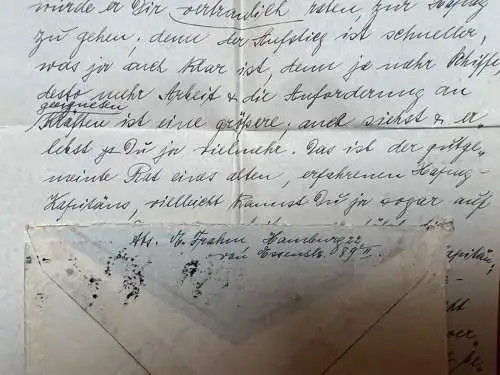 würde er Dir vertraulich raten, zur Hapag
zu gehen; denn der Aufstieg ist schneller,
was ja auch klar ist, denn je mehr Schiffe
desto mehr Arbeit & die Anforderung an
geeigneten
Kräften ist eine größere; auch siehst & er-
lebst Du ja vielmehr. Das ist der gutge-
meinte Rat eines alten, erfahrenen Hapag-
Kapitäns, vielleicht kannst Du ja sogar auf
Abs. Frahm Hamburg 22
von Essenstr. 89 II.
Kapitän,